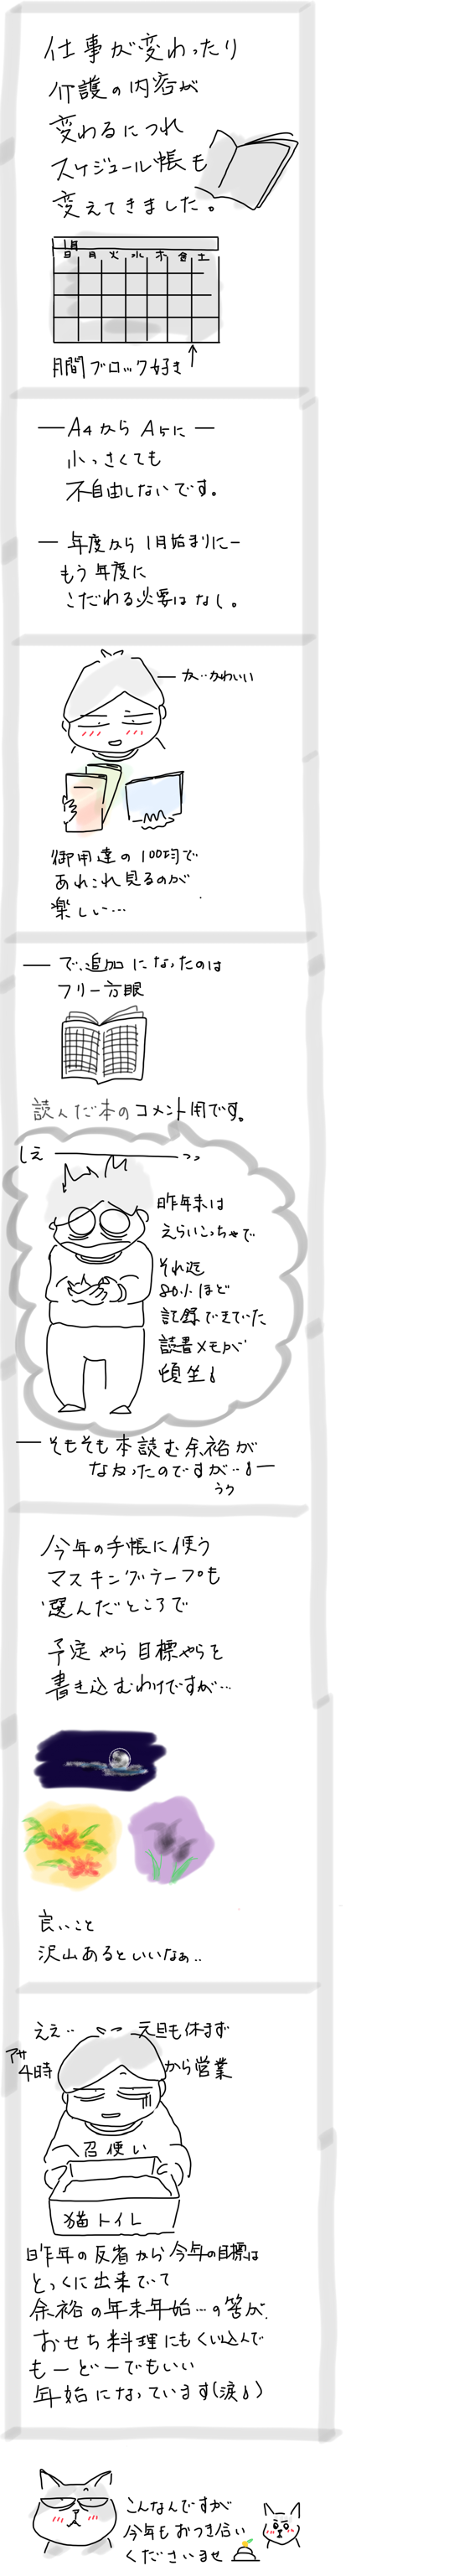 仕事が変わったり
介護の内容が
変わるにつれ
スケジュール帳も
変えてきました。
1月
日 月 火 水 木 金 土
月間ブロック好き
―A4からA5に―
小っさくても
不自由しないです。
― 年度から1月始まりに―
もう年度に
こだわる必要はなし。
― か‥かわいい
御用達の100均で
あれこれ見るのが
楽しい…
― で、追加になったのは
フリー方眼
読んだ本のコメント用です。
しえ
昨年末は
えらいこっちゃで
それ迄
80%ほど
記録できていた
読書メモが
頓挫
― そもそも本読む余裕が
なかったのですが‥―
うク
今年の手帳に使う
マスキングテープも
選んだところで
予定やら目標やらを
書き込むわけですが…
良いこと
沢山あるといいなぁ‥
ええ‥
元旦も休まず
アサ
4時
から営業
召使い
猫トイレ
昨年の反省から今年の目標は
とっくに出来てて
余裕の年末年始…の筈が
おせち料理にもくい込んで
もーどーでもいい
年始になっています(涙)
こんなんですが
今年もおつき合い
くださいませ